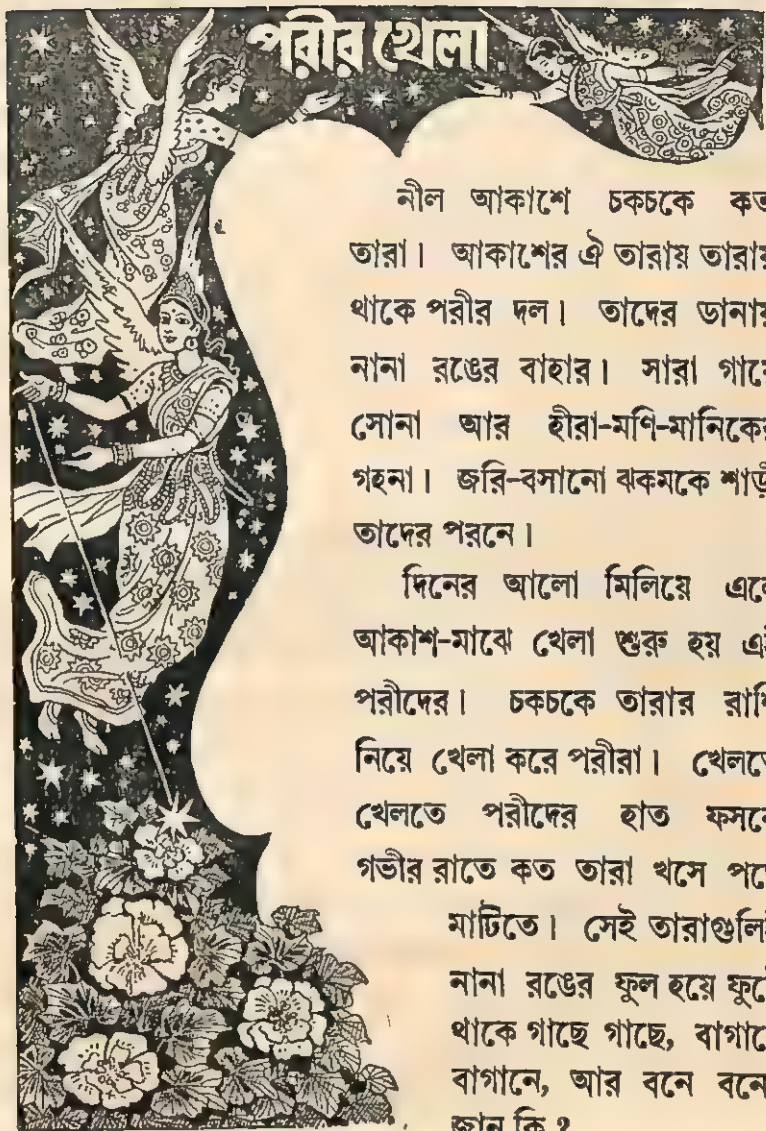 পরীর খেলা
নীল আকাশে চকচকে কত
তারা। আকাশের ঐ তারায় তারায়
থাকে পরীর দল। তাদের ডানায়
নানা রঙের বাহার। সারা গায়ে
সোনা আর হীরা-মণি-মানিকের
গহনা। জরি-বসানো ঝকমকে শাড়ী
তাদের পরনে।
দিনের আলো মিলিয়ে এলে
আকাশ-মাঝে খেলা শুরু হয় এই
পরীদের। চকচকে তারার রাশি
নিয়ে খেলা করে পরীরা। খেলতে
খেলতে পরীদের হাত ফসকে
গভীর রাতে কত তারা খসে পড়ে
মাটিতে। সেই তারাগুলিই
নানা রঙের ফুল হয়ে ফুটে
থাকে গাছে গাছে, বাগানে
বাগানে, আর বনে বনে।
জান কি ?